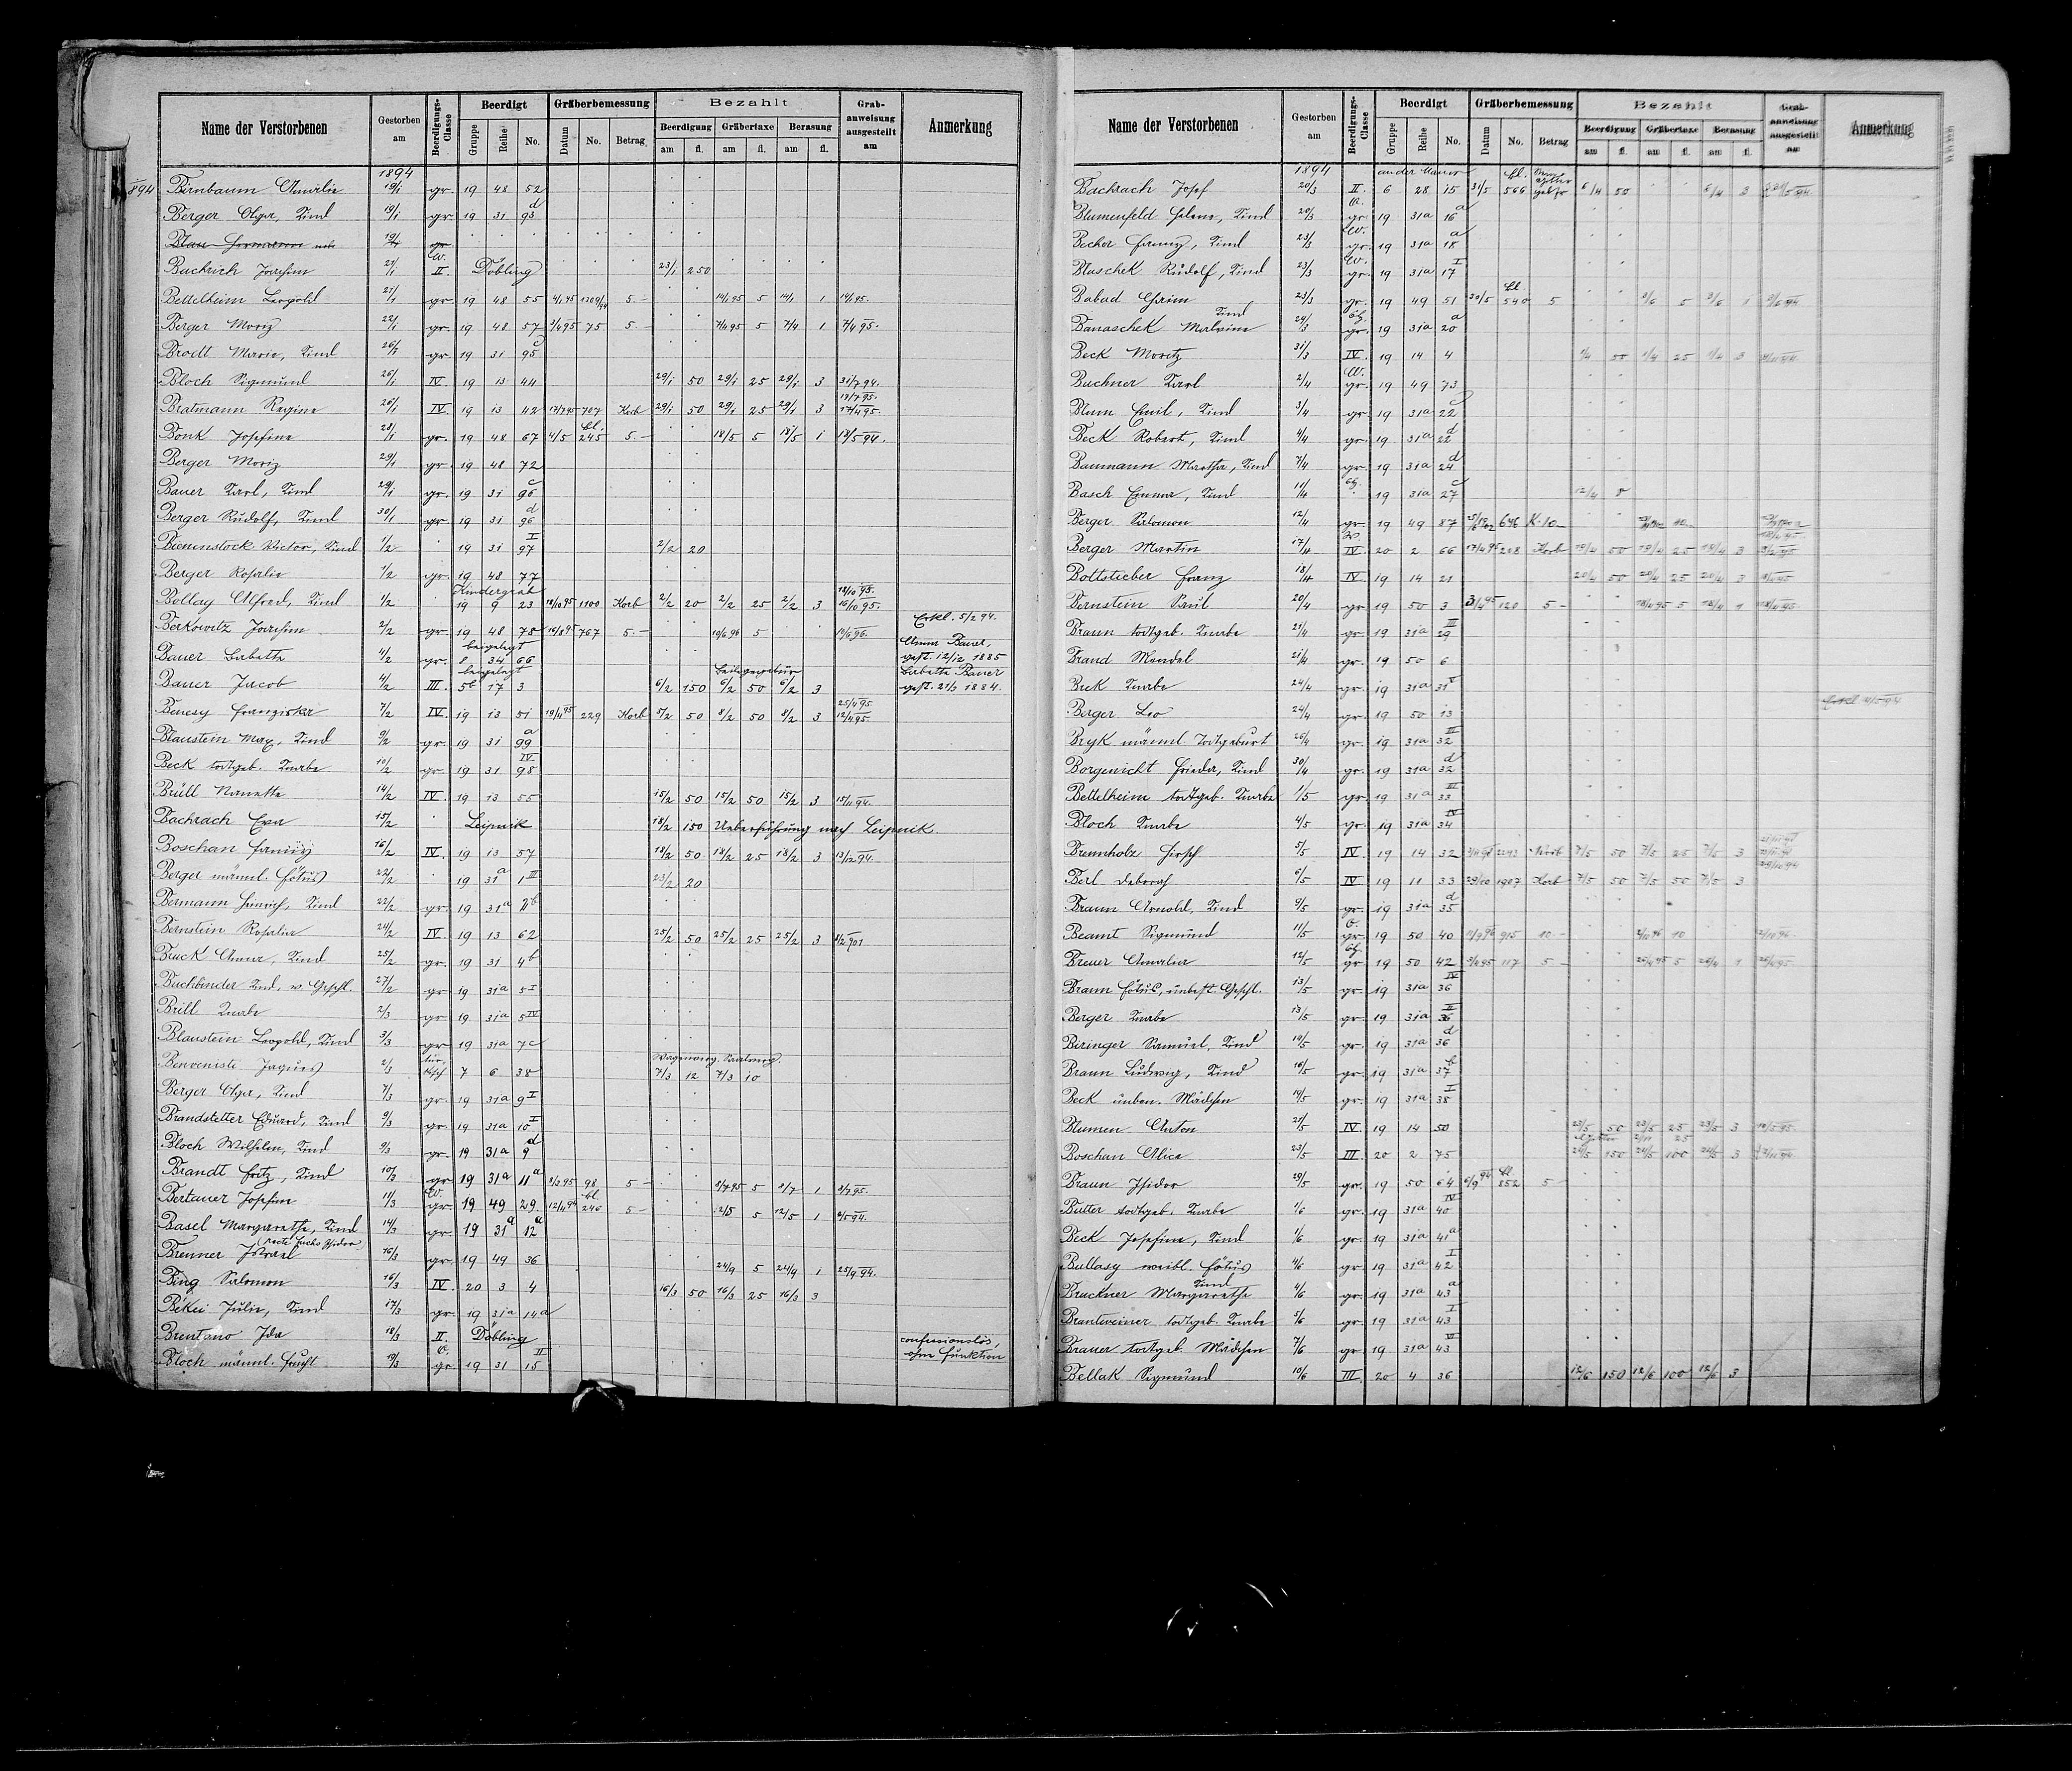 Name der Verstorbenen Gestorben am Beerdigungs-Classe Beerdigt Gruppe Reihe No. Gräberbemessung Datum No. Betrag Bezahlt Beerdigung am fl. Gräbertaxe am fl. Berasung am fl. Grab-anweisung ausgestellt am Anmerkung
1894
Birnbaum Amalie 19/1 gr. 19 48 52
Berger Olga, Kind 19/1 gr 19 31 93 d
Blau Hermann 19/1 gr
Bachrich Joachim 21/1 II. Döbling 23/1 250
Bettelheim Leopold 21/1 gr. 19 48 55 5.- 14/1 95 5 14/1 1 14/1 95.
Berger Moriz 22/1 gr. 19 48 57 3/4 95 75 5.- 7/4 95 5 7/4 1 7/4 95.
Brodt Marie, Kind 26/1 gr. 19 31 95 c
Bloch Sigmund 26/1 IV 19 13 44 29/1 50 29/1 25 29/1 3 31/7 94.
Bratmann Regine 26/1 IV. 19 13 42 17/7 95 707 Korb 29/1 50 29/1 25 29/1 3 17/7 95. 17/4 95.
Bonk Josefine 28/1 gr. 19 48 67 4/5 bl. 245 5.- 18/5 5 18/5 1 18/5 94.
Berger Moriz 29/1 gr. 19 48 72
Bauer Karl, Kind 29/1 gr. 19 31 96 c
Berger Rudolf, Kind 30/1 gr. 19 31 96 d
Bienenstock Victor, Kind 1/2 19 31 97 I 2/2 20
Berger Rosalie 1/2 gr. 19 48 77
Bollay Alfred, Kind 1/2 Kindergrab 19 9 23 18/10 95 1100 Korb 2/2 20 2/2 25 2/2 3 18/10 95. 16/10 95.
Berkowitz Joachim 2/2 gr. 19 48 78 16/8 95 767 5.- 19/6 96 5 19/6 96. Erkl. 5/2 94.
Bauer Babette 4/2 gr. beigelegt 8 34 66 Anna Bauer, gest. 12/12 1885
Bauer Jacob 4/2 III. beigelegt 5b 17 3 6/2 150 6/2 50 6/2 3 Babette Bauer gest. 21/3 1884.
Benesy Franziska 7/2 IV. 19 13 51 19/4 95 229 Korb 8/2 50 8/2 50 8/2 3 25/4 95 12/4 95.
Blaustein Max, Kind 9/2 gr. 19 31 99 a
Beck todtgeb. Knabe 10/2 gr. 19 31 98 IV
Brüll Nanette 14/2 IV. 19 13 55 15/2 50 15/2 50 15/2 3 15/11 94.
Bachrach Eva 15/2 Leipnik 18/2 150 Ueberführung nach Leipnik.
Boschan Fanny 16/2 IV. 19 13 57 18/2 50 18/2 25 18/2 3 13/12 94.
Berger männl. Fötus 22/2 19 31 a 1 III 23/2 20
Bermann Heinrich, Kind 22/2 gr. 19 31a 2b
Bernstein Rosalia 24/2 IV. 19 13 62 25/2 50 25/2 25 25/2 3
Bruck Anna, Kind 25/2 gr. 19 31 4b
Buchbinder Kind, w. Geschl. 27/2 gr 19 31a 5 I
Brill Knabe 2/3 gr. 19 31a 5 IV
Blaustein Leopold, Kind 3/3 gr 19 31a 7c
Benveniste Jaques 2/3 7 6 38 7/3 12 7/3 10
Berger Olga, Kind 7/3 gr. 19 31a 9 I
Brandstetter Eduard, Kind 9/3 gr. 19 31a 10 I
Bloch Wilhelm, Kind 9/3 gr. 19 31a 9 d
Brandt Fritz, Kind 10/3 gr 19 31a 11a 98 5 - 5 1
Bertauer Josefine 11/3 W. gr. 19 49 29 12/4 94 bl 246 5- 12/5 5 12/5 1
Basel Margarethe, Kind 14/3 gr. 19 31a 12a
recte Fuchs Isidor
Brenner Israel 16/3 gr. 19 49 36 24/9 5 24/9 1 25/9 94.
Bing Salomon 16/3 IV. 20 3 4 16/3 50 16/3 25 16/3 3
Békei Julie, Kind 17/3 gr. 19 31a 14a
Brentano Ida 18/3 II. Döbling confessionslos, ohne Funktion
Bloch männl. Frucht 19/3 O. gr. 19 31 15 II
Name der Verstorbenen Gestorben am Beerdigungs-Classe Beerdigt Gruppe Reihe No. Gräberbemessung Datum No. Betrag Bezahlt Beerdigung am fl. Gräbertaxe am fl. Berasung am fl. Grab-anweisung ausgestellt am Anmerkung
1894 an der Mauer
Bachrach Josef 20/3 II. 6 28 15 31/5 bl. 566 6/4 50 6/4 3
Blumenfeld Helene, Kind 20/3 gr 19 31a 16 a
Becher Franz, Kind 23/3 W. gr. 19 31a 18 a
Blaschek Rudolf, Kind 23/3 W. gr. 19 31a 17 I
Babad Chaim 23/3 gr. 19 49 51 bl 540 5 5 1
Banaschek Malvine Kind 24/3 gr. 19 31a 20 a
Beck Moritz 31/3 IV. 19 14 4 1/4 50 1/4 25 1/4 3
Buchner Karl 2/4 W. gr. 19 49 73
Blum Emil, Kind 3/4 gr. 19 31a 22 c
Beck Robert, Kind 4/4 gr. 19 31a 22 d
Baumann Martha, Kind 7/4 gr. 19 31a 24 d
Basch Emma, Kind 11/4 19 31a 27 c 12/4 8
Berger Salomon 12/4 gr. 19 49 87 646 K-10-
Berger Martin 17/4 IV 20 2 66 17/4 95 208 Korb 19/4 50 19/4 25 19/4 3
Bottstieber Franz 18/4 IV. 19 14 21 20/4 50 20/4 25 20/4 3
Bernstein Paul 20/4 gr 19 50 3 120 5- 5 1
Braun todtgeb. Knabe 21/4 gr. 19 31a 29 III
Brand Mendel 21/4 gr. 19 50 6
Brek Knabe 24/4 gr. 19 31a 31
Berger Leo 24/4 gr. 19 50 13
Bryk männl. Todtgeburt 26/4 gr. 19 31a 32 III
Borgenicht Frieda, Kind 30/4 gr. 19 31a 32 d
Bettelheim todtgeb. Knabe 1/5 gr. 19 31a 33 III
Bloch Knabe 4/5 gr. 19 31a 34 IV
Brennholz Hirsch 5/5 IV. 19 14 32 Korb 7/5 50 7/5 25 7/5 3
Berl Deborah 6/5 IV 19 11 33 29/10 1907 Korb 7/5 50 7/5 50 7/5 3
Braun Arnold, Kind 9/5 gr. 19 31a 35 d
Beamt Sigmund 11/5 O. gr. 19 50 40 915 10- 10
Breuer Amalia 12/5 gr 19 50 42 117 5- 5 1
Braun Fötus, unbest. Geschl. 13/5 gr. 19 31a 36 IV
Berger Knabe 13/5 gr. 19 31a 36 II
Biringer Samuel, Kind 14/5 gr. 19 31a 36 d
Braun Ludwig, Kind 16/5 gr. 19 31a 37 b
Beck unben. Mädchen 19/5 gr. 19 31a 38 I
Blumen Anton 21/5 IV. 19 14 50 23/5 50 23/5 25 23/5 3
Boschan Alice 23/5 III. 20 2 75 24/5 150 24/5 100 24/5 3
Braun Isidor 29/5 gr. 19 50 64 bl. 852 5-
Butter todtgeb. Knabe 1/6 gr. 19 31a 40 IV
Beck Josefine, Kind 1/6 gr. 19 31a 41a
Bullasy weibl. Fötus 4/6 gr. 19 31a 42 I
Bruckner Margarethe Kind 4/6 gr. 19 31a 43 a
Brantweiner todtgeb. Knabe 5/6 gr. 19 31a 43 I
Brauer todtgeb. Mädchen 7/6 gr. 19 31a 43
Bellak Sigmund 10/6 III. 20 4 36 12/6 150 12/6 100 12/6 3